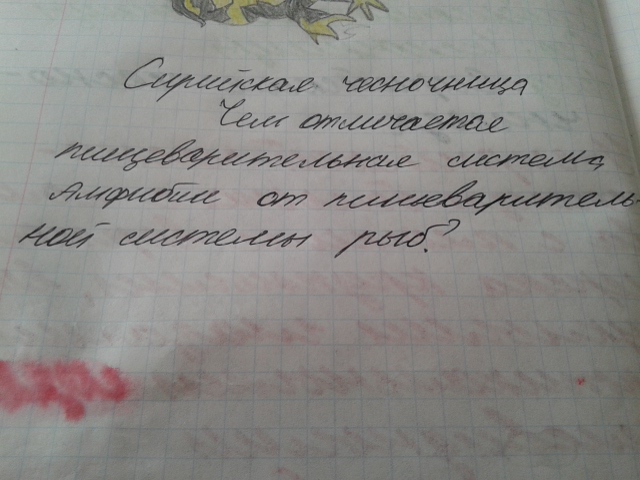 Сирийская чесночница
Чем отличается
пищеварительная система
Амфибии от пищеваритель-
ной системы рыб?